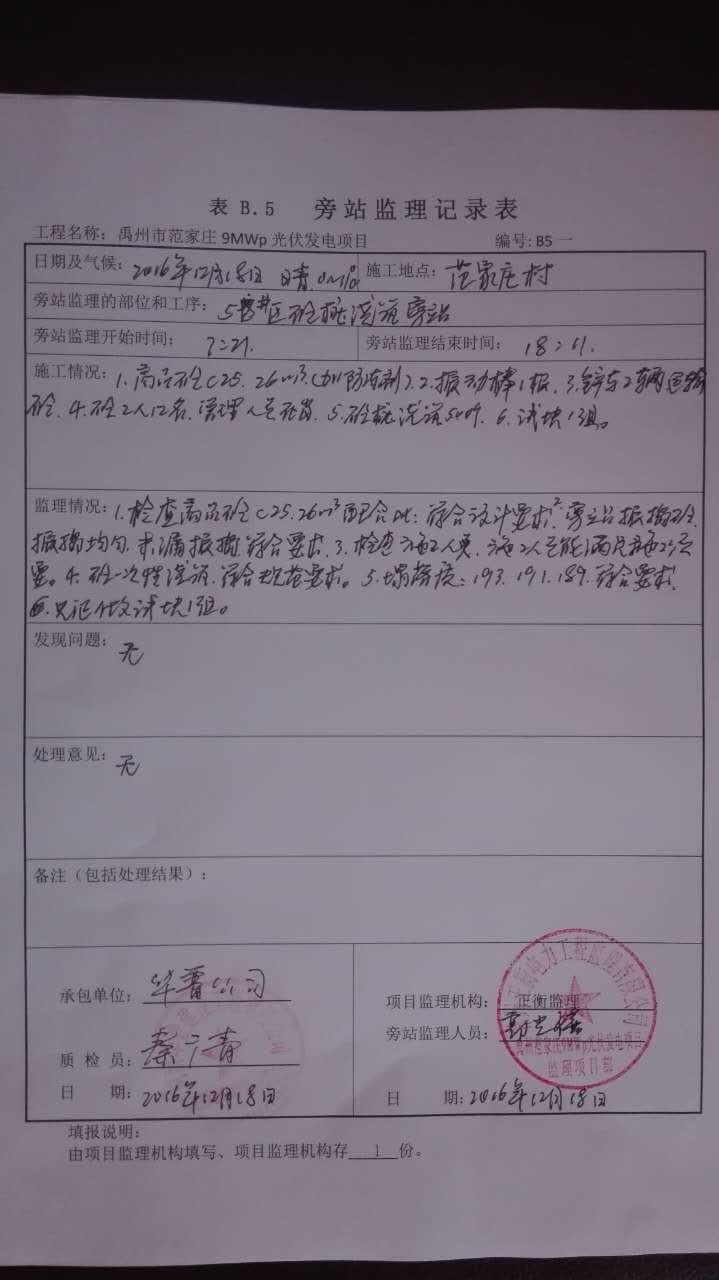 表 B.5 旁站监理记录表
工程名称：禹州市范家庄 9MWp 光伏发电项目 编号: B5 一
日期及气候： 2016年12月18日 晴 施工地点： 范家庄村
旁站监理的部位和工序： 区砼桩浇筑旁站
旁站监理开始时间： 7:21. 旁站监理结束时间： 18:
施工情况：1.商品砼C25.26m³(加防冻剂).2.振动棒1根.3. 车2辆运输
砼.4.砼工人12名.管理人员 .5.砼桩浇筑 .6.试块1组。
监理情况：1.检查商品砼C25.26m³配合比：符合设计要求.2.旁站振捣砼.
振捣均匀.未漏振捣.符合要求.3.检查 工人 能满足施工
要.4.砼一次性浇筑.符合规范要求。5.塌落度：193.191.189.符合要求.
6.见证做试块1组。
发现问题：无
处理意见：无
备注（包括处理结果）：
承包单位： 华晋公司
项目监理机构： 正衡监理
旁站监理人员：
质 检 员： 秦 青
日 期：2016年12月18日 日 期：2016年12月18日
正衡电力工程监理有限公司
禹州范家庄9MWp光伏发电项目
监理项目部
填报说明：
由项目监理机构填写、项目监理机构存 1 份。